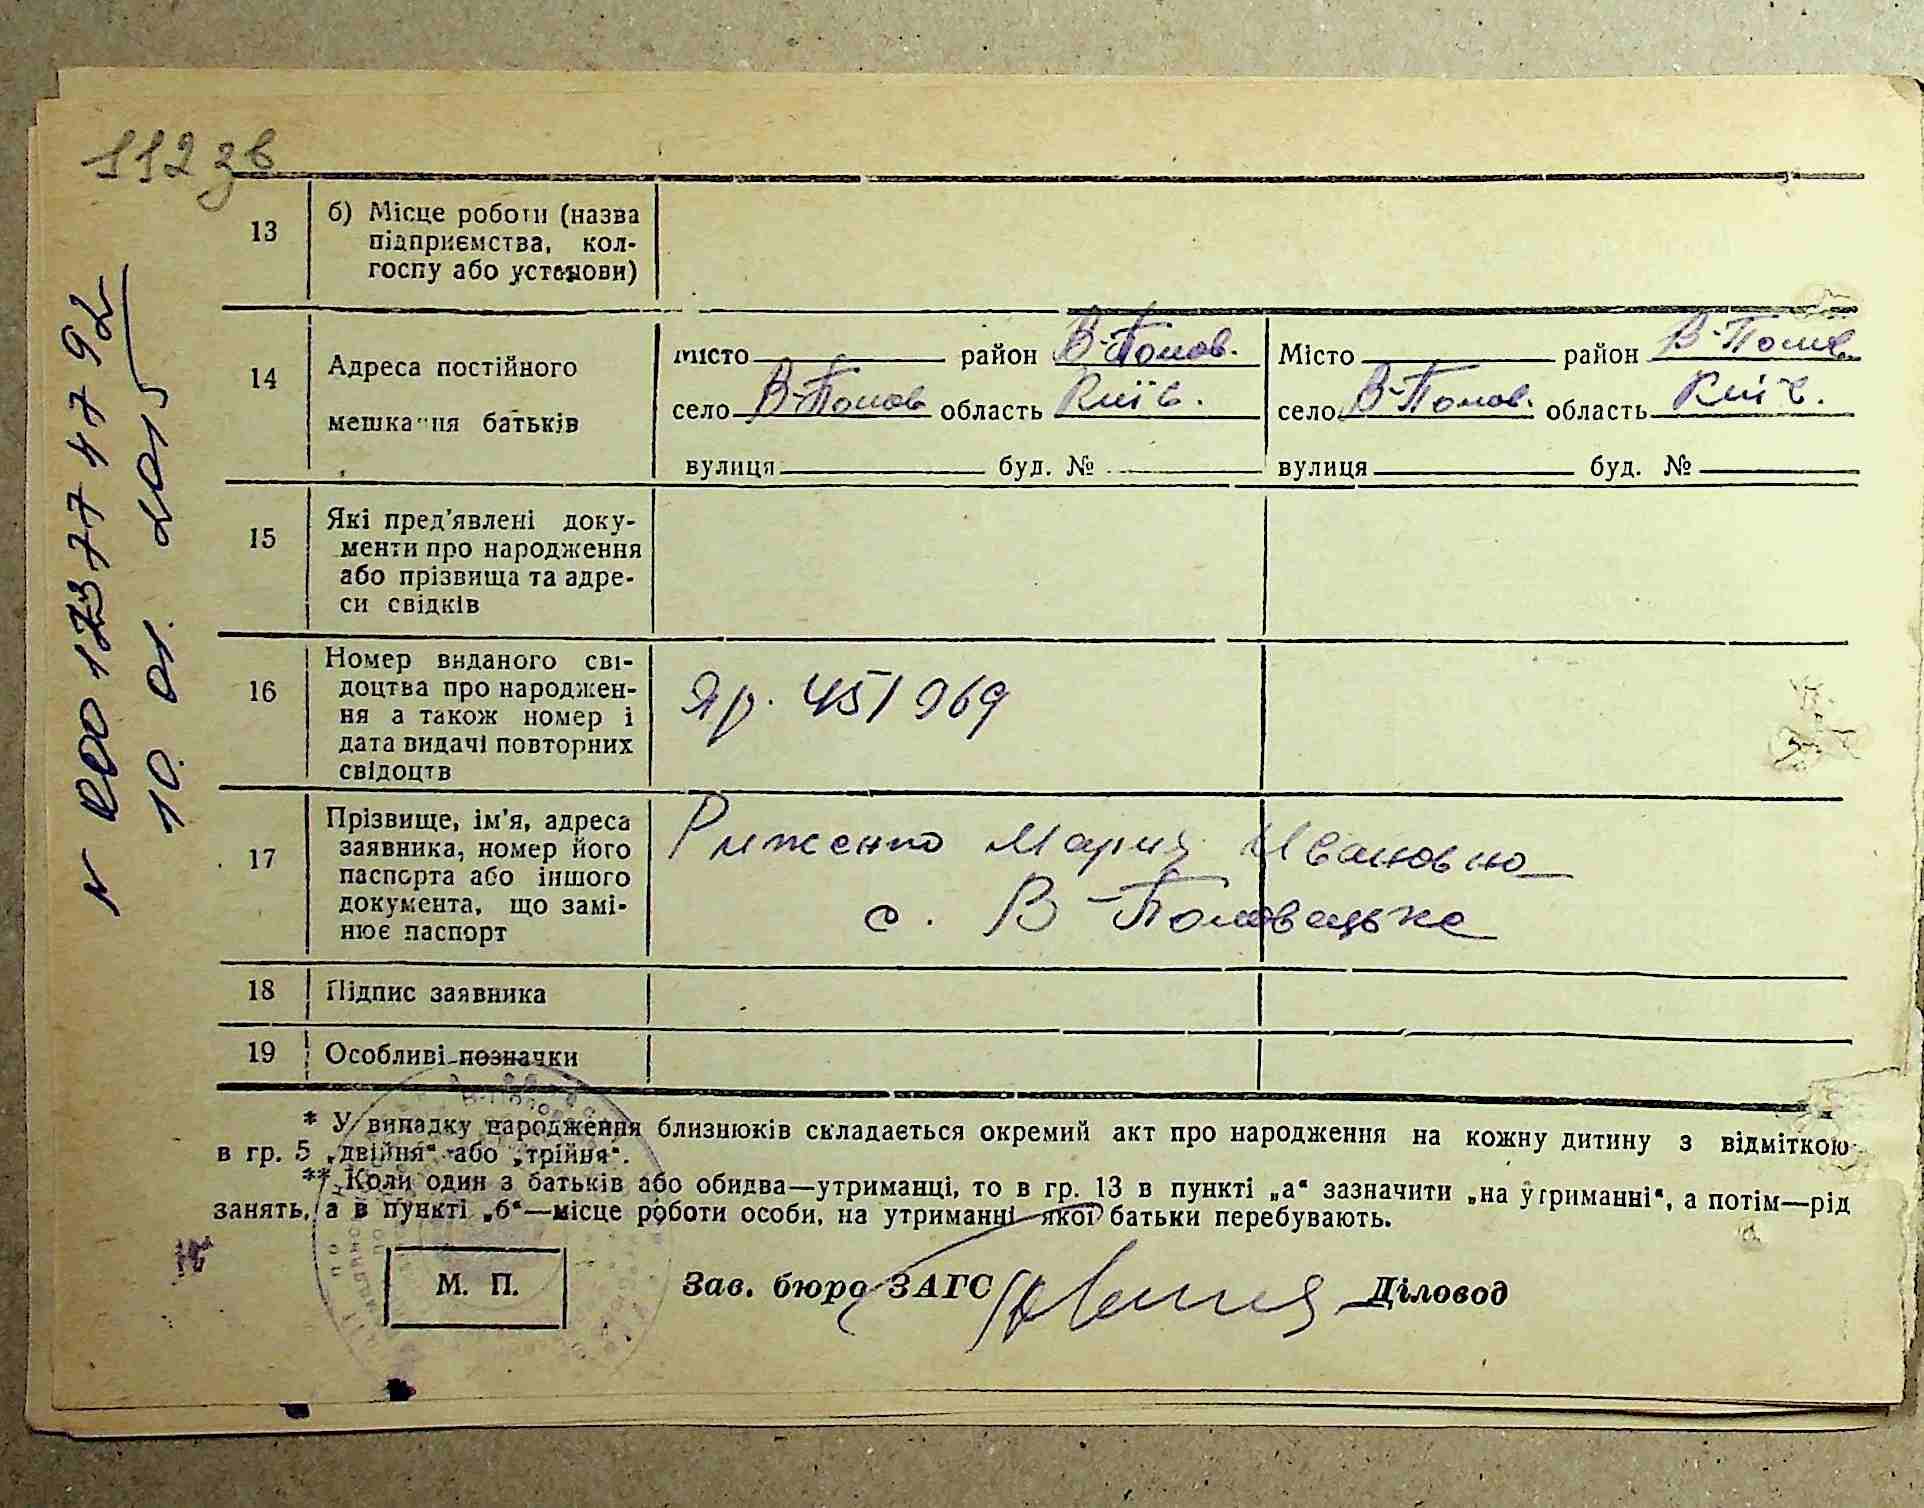 112 зв
N 00173774792
10. 01. 2015
13
б) Місце роботи (назва
підприємства, кол-
госпу або установи)
14
Адреса постійного
мешкання батьків
місто район В-Полов.
село В-Полов область Київ.
вулиця буд. №
Місто район В-Полов
село В-Полов. область Київ.
вулиця буд. №
15
Які пред'явлені доку-
менти про народження
або прізвища та адре-
си свідків
16
Номер виданого сві-
доцтва про народжен-
ня а також номер і
дата видачі повторних
свідоцтв
Яр. 451969
17
Прізвище, ім'я, адреса
заявника, номер його
паспорта або іншого
документа, що замі-
нює паспорт
Риженко Мария Ивановна
с. В-Половецьке
18
Підпис заявника
19
Особливі позначки
* У випадку народження близнюків складається окремий акт про народження на кожну дитину з відміткою
в гр. 5 „двійня“ або „трійня“.
** Коли один з батьків або обидва—утриманці, то в гр. 13 в пункті „а“ зазначити „на утриманні“, а потім—рід
занять, а в пункті „б“—місце роботи особи, на утриманні якої батьки перебувають.
М. П.
Зав. бюро ЗАГС Діловод